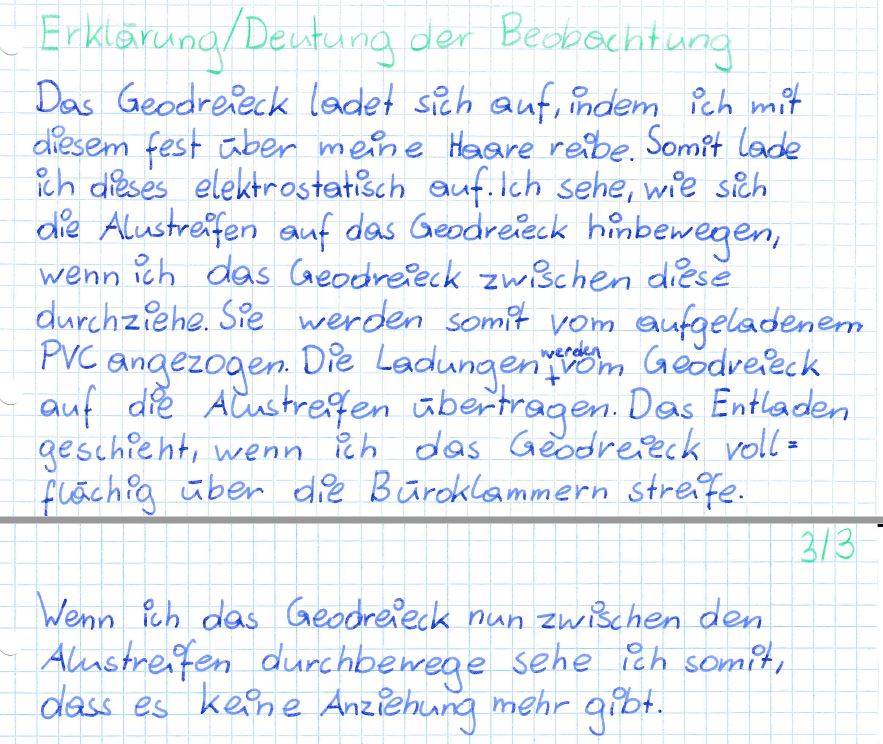 Erklärung/Deutung der Beobachtung
Das Geodreieck ladet sich auf, indem ich mit
diesem fest über meine Haare reibe. Somit lade
ich dieses elektrostatisch auf. Ich sehe, wie sich
die Alustreifen auf das Geodreieck hinbewegen,
wenn ich das Geodreieck zwischen diese
durchziehe. Sie werden somit vom aufgeladenem
PVC angezogen. Die Ladungen werden vom Geodreieck
auf die Alustreifen übertragen. Das Entladen
geschieht, wenn ich das Geodreieck voll=
flächig über die Büroklammern streife.
3/3
Wenn ich das Geodreieck nun zwischen den
Alustreifen durchbewege sehe ich somit,
dass es keine Anziehung mehr gibt.